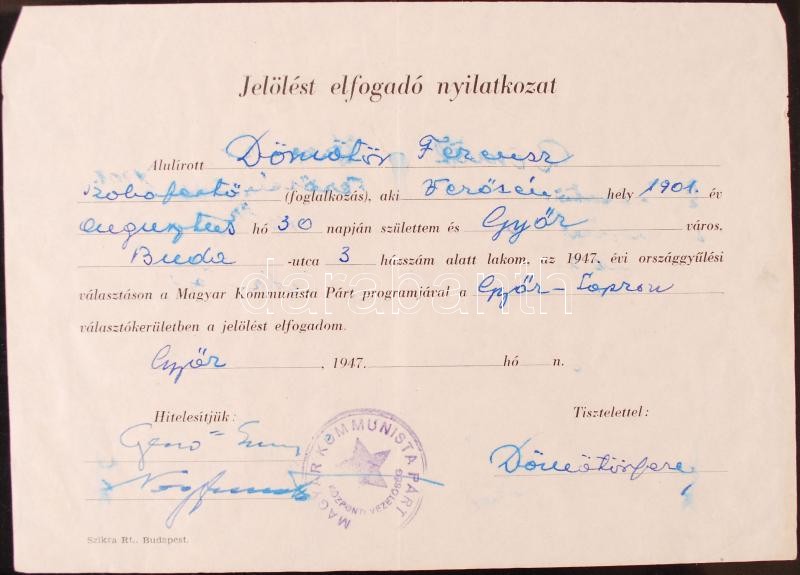 Jelölést elfogadó nyilatkozat
Alulirott Dömötör Ferensz
Szobafestő (foglalkozás), aki hely 1901. év
augusztus hó 30 napján születtem és Győr város,
Buda -utca 3 házszám alatt lakom, az 1947. évi országgyűlési
választáson a Magyar Kommunista Párt programjával a Győr-Sopron
választókerületben a jelölést elfogadom.
Győr, 1947. hó n.
Hitelesítjük: Tisztelettel:
Gerő Ernő
Dömötör Ferenc
MAGYAR KOMMUNISTA PÁRT
KÖZPONTI VEZETŐSÉG
Szikra Rt., Budapest.
darabanth